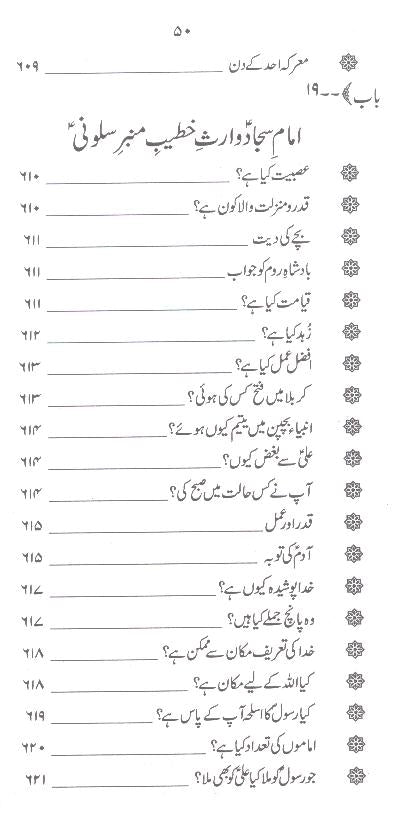 ۵۰
معرکہ احد کے دن ۶۰۹
باب ﴾۔۔۱۹
امامِ سجادؑ وارثِ خطیبِ منبرِ سلونیؑ
عصبیت کیا ہے؟ ۶۱۰
قدر و منزلت والا کون ہے؟ ۶۱۰
بچے کی دیت ۶۱۱
بادشاہِ روم کو جواب ۶۱۱
قیامت کیا ہے؟ ۶۱۱
زُہد کیا ہے؟ ۶۱۲
افضل عمل کیا ہے؟ ۶۱۳
کربلا میں فتح کس کی ہوئی؟ ۶۱۳
انبیاءؑ بچپن میں یتیم کیوں ہوئے؟ ۶۱۴
علیؑ سے بغض کیوں؟ ۶۱۴
آپ نے کس حالت میں صبح کی؟ ۶۱۴
قدر اور عمل ۶۱۵
آدمؑ کی توبہ ۶۱۵
خدا پوشیدہ کیوں ہے؟ ۶۱۷
وہ پانچ جملے کیا ہیں؟ ۶۱۷
خدا کی تعریف مکان سے ممکن ہے؟ ۶۱۸
کیا اللہ کے لیے مکان ہے؟ ۶۱۸
کیا رسولؐ کا اسلحہ آپ کے پاس ہے؟ ۶۱۹
اماموں کی تعداد کیا ہے؟ ۶۲۰
جو رسولؐ کو ملا کیا علیؑ کو بھی ملا؟ ۶۲۱